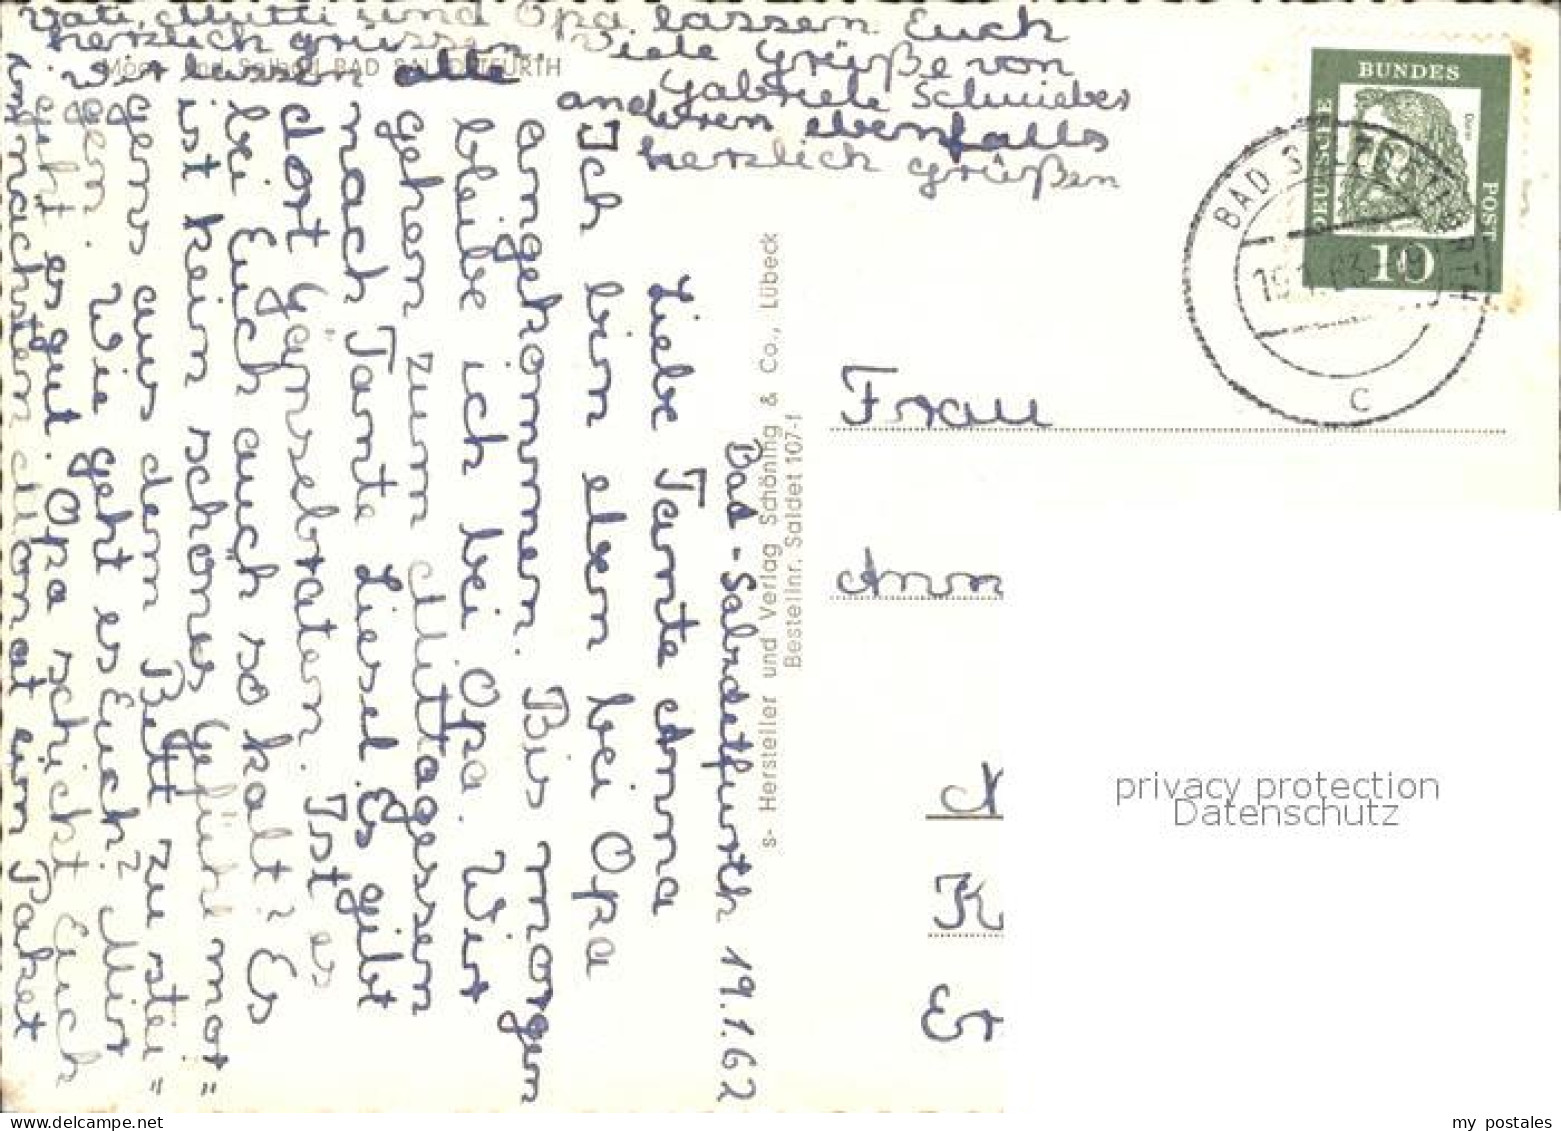 Bad-Salzdetfurth 19.1.62
Liebe Tante Anna
Ich bin eben bei Opa
angekommen. Bis morgen
bleibe ich bei Opa. Wir
gehen zum Mittagessen
nach Tante Liesel. Es gibt
dort Gänsebraten. Ist es
bei Euch auch so kalt? Es
ist kein schönes Gefühl mor"
gens aus dem Bett zu stei"
gen. Wie geht es Euch? Mir
geht es gut. Opa schickt Euch
im nächsten Monat ein Paket
Vati, Mutti und Opa lassen Euch
herzlich grüssen. Viele Grüße von
Wir lassen alle Gabriele
anderen ebenfalls
herzlich grüßen
Moor- und Solbad BAD SALZDETFURTH
s- Hersteller und Verlag Schöning & Co., Lübeck
Bestellnr. Saldet 107-f
DEUSCHE
BUNDES
POST
10
BAD SALZDETFURTH
c
Frau
Ann
K
privacy protection
Datenschutz
my postales